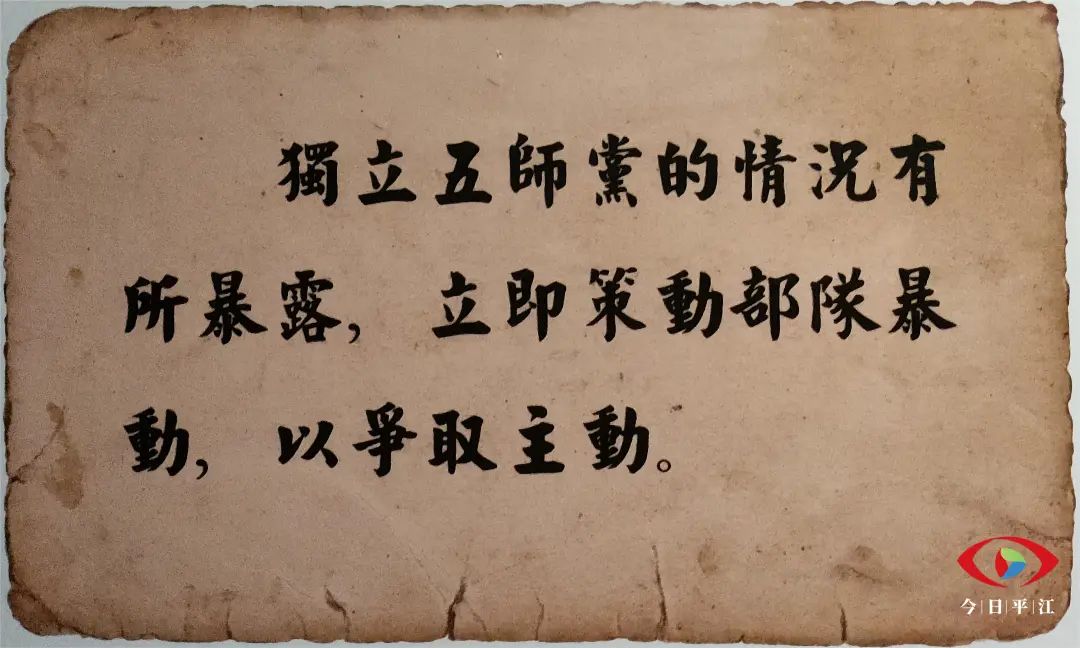 獨立五師黨的情況有
所暴露，立即策動部隊暴
動，以爭取主動。
今|日|平|江